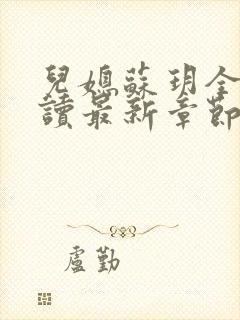 兒媳蘇玥全
讀最新章節
盧勤